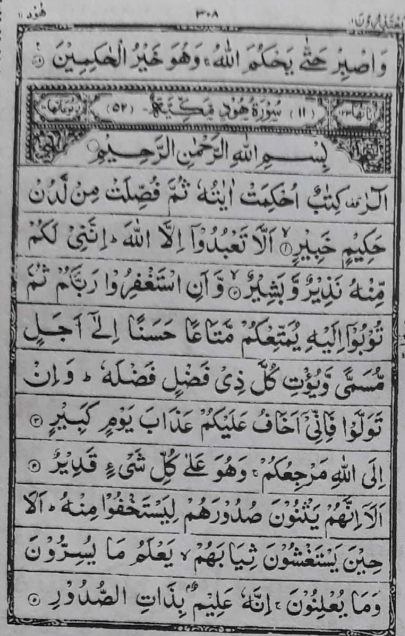 هُوْد ۱۱
۳۰۸
وَاصْبِرْ حَتّٰى يَحْكُمَ اللّٰهُ ۚ وَهُوَ خَيْرُ الْحٰكِمِيْنَ
(۱۱) سُوْرَةُ هُوْدٍ مَّكِّيَّةٌ (۵۲)
بِسْمِ اللّٰهِ الرَّحْمٰنِ الرَّحِيْمِ
الٓرٰ ۫ كِتٰبٌ اُحْكِمَتْ اٰيٰتُهٗ ثُمَّ فُصِّلَتْ مِنْ لَّدُنْ
حَكِيْمٍ خَبِيْرٍ ۙ۱ اَلَّا تَعْبُدُوْۤا اِلَّا اللّٰهَ ؕ اِنَّنِيْ لَكُمْ
مِّنْهُ نَذِيْرٌ وَّبَشِيْرٌ ۙ۲ وَّاَنِ اسْتَغْفِرُوْا رَبَّكُمْ ثُمَّ
تُوْبُوْۤا اِلَيْهِ يُمَتِّعْكُمْ مَّتَاعًا حَسَنًا اِلٰۤى اَجَلٍ
مُّسَمًّى وَّيُؤْتِ كُلَّ ذِيْ فَضْلٍ فَضْلَهٗ ؕ وَاِنْ
تَوَلَّوْا فَاِنِّيْۤ اَخَافُ عَلَيْكُمْ عَذَابَ يَوْمٍ كَبِيْرٍ ۳
اِلَى اللّٰهِ مَرْجِعُكُمْ ۚ وَهُوَ عَلٰى كُلِّ شَيْءٍ قَدِيْرٌ ۴
اَلَاۤ اِنَّهُمْ يَثْنُوْنَ صُدُوْرَهُمْ لِيَسْتَخْفُوْا مِنْهُ ؕ اَلَا
حِيْنَ يَسْتَغْشُوْنَ ثِيَابَهُمْ ۙ يَعْلَمُ مَا يُسِرُّوْنَ
وَمَا يُعْلِنُوْنَ ۚ اِنَّهٗ عَلِيْمٌۢ بِذَاتِ الصُّدُوْرِ ۵